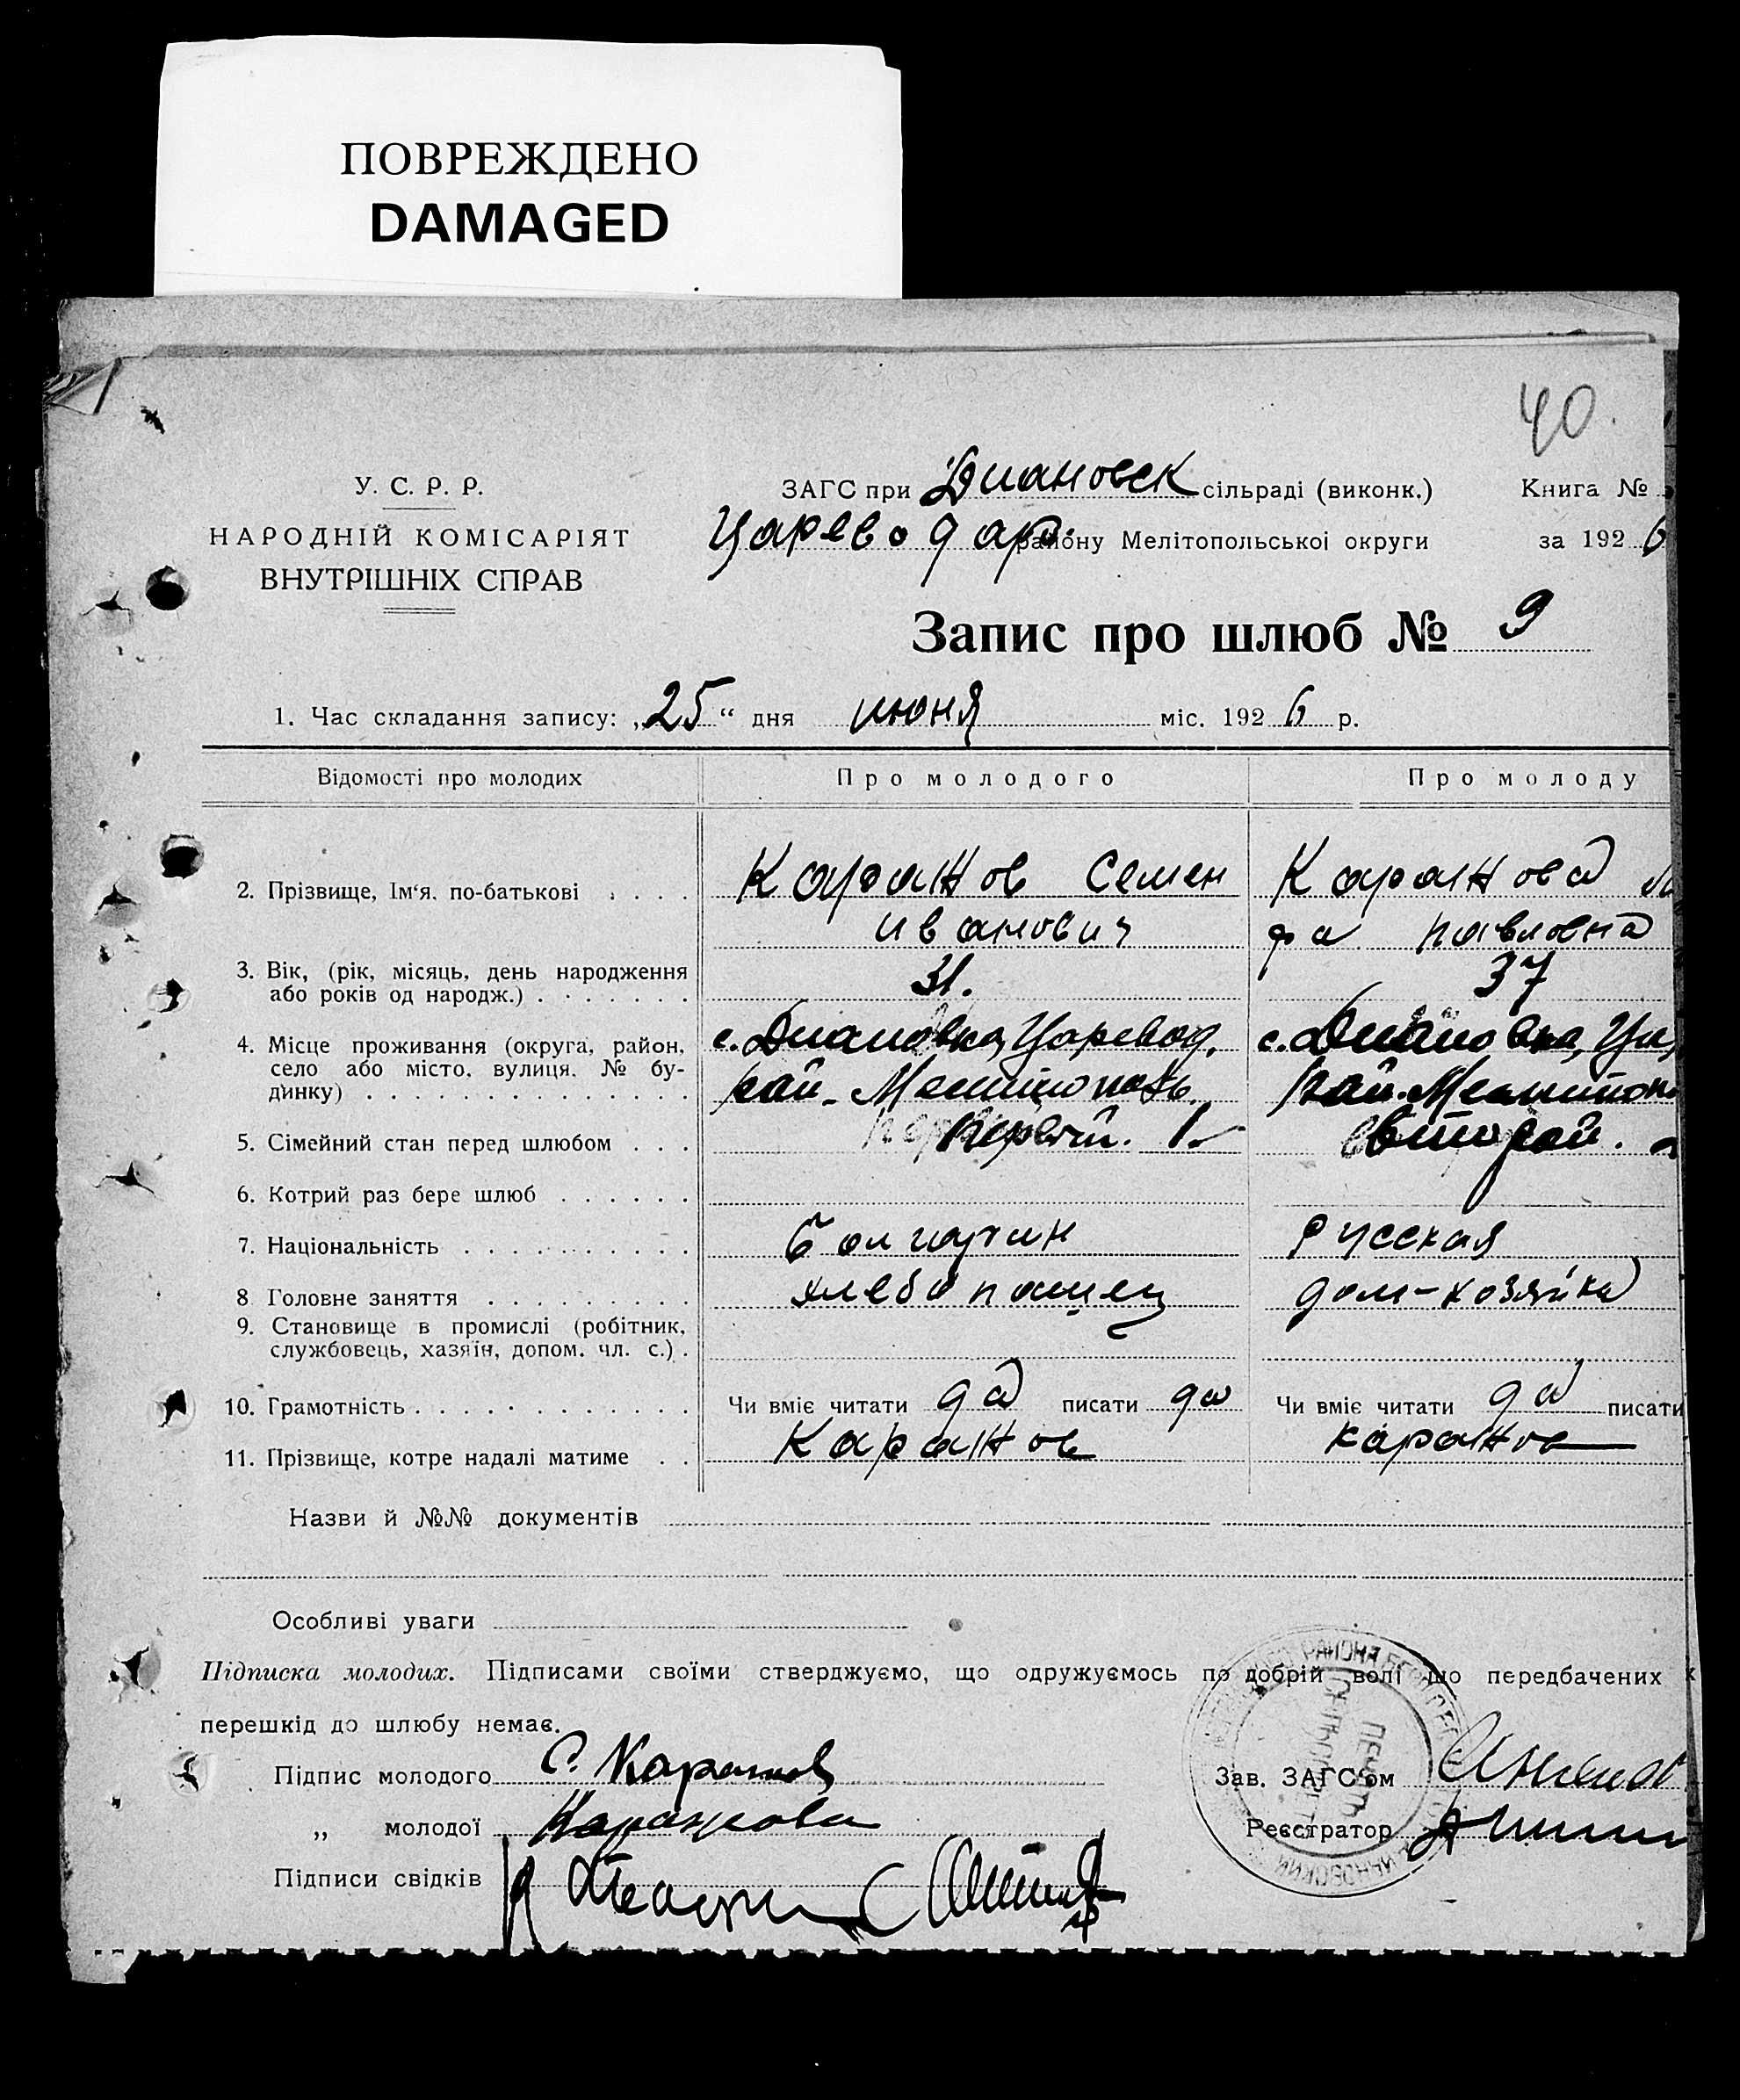 ПОВРЕЖДЕНО
DAMAGED
40.
У. С. Р. Р.
НАРОДНІЙ КОМІСАРІЯТ
ВНУТРІШНІХ СПРАВ
ЗАГС при Диановск сільраді (виконк.)
Книга №
Цареводар. району Мелітопольської округи
за 1926
Запис про шлюб № 9
1. Час складання запису: „25“ дня июня міс. 1926 р.
Відомості про молодих
Про молодого
Про молоду
2. Прізвище, Ім‘я, по-батькові . . . .
Каражов Семен
Иванович
Каражова
фа Павловна
3. Вік, (рік, місяць, день народження
або років од народж.) . . . . . . .
31.
37
4. Місце проживання (округа, район,
село або місто, вулиця, № бу-
динку) . . . . . . . . . . . . . .
с. Диановка, Царевод.
рай. Мелитополь.
с. Диановка, Ца
рай. Мелитоп
5. Сімейний стан перед шлюбом . . .
Первый. 1.
второй.
6. Котрий раз бере шлюб . . . . . .
7. Національність . . . . . . . . . .
болгарин
русская
8 Головне заняття . . . . . . . . .
хлебопашец
дом-хозяйка
9. Становище в промислі (робітник,
службовець, хазяїн, допом. чл. с.) .
10. Грамотність . . . . . . . . . . . .
Чи вміє читати да писати да
Чи вміє читати да писати
11. Прізвище, котре надалі матиме . .
Каражов
Каражов
Назви й №№ документів
Особливі уваги
Підписка молодих. Підписами своїми стверджуємо, що одружуємось по добрій волі що передбачених
перешкід до шлюбу немає.
Підпис молодого С. Каражов
Зав. ЗАГС‘ом
„ молодої Каражова
Реєстратор
Підписи свідків